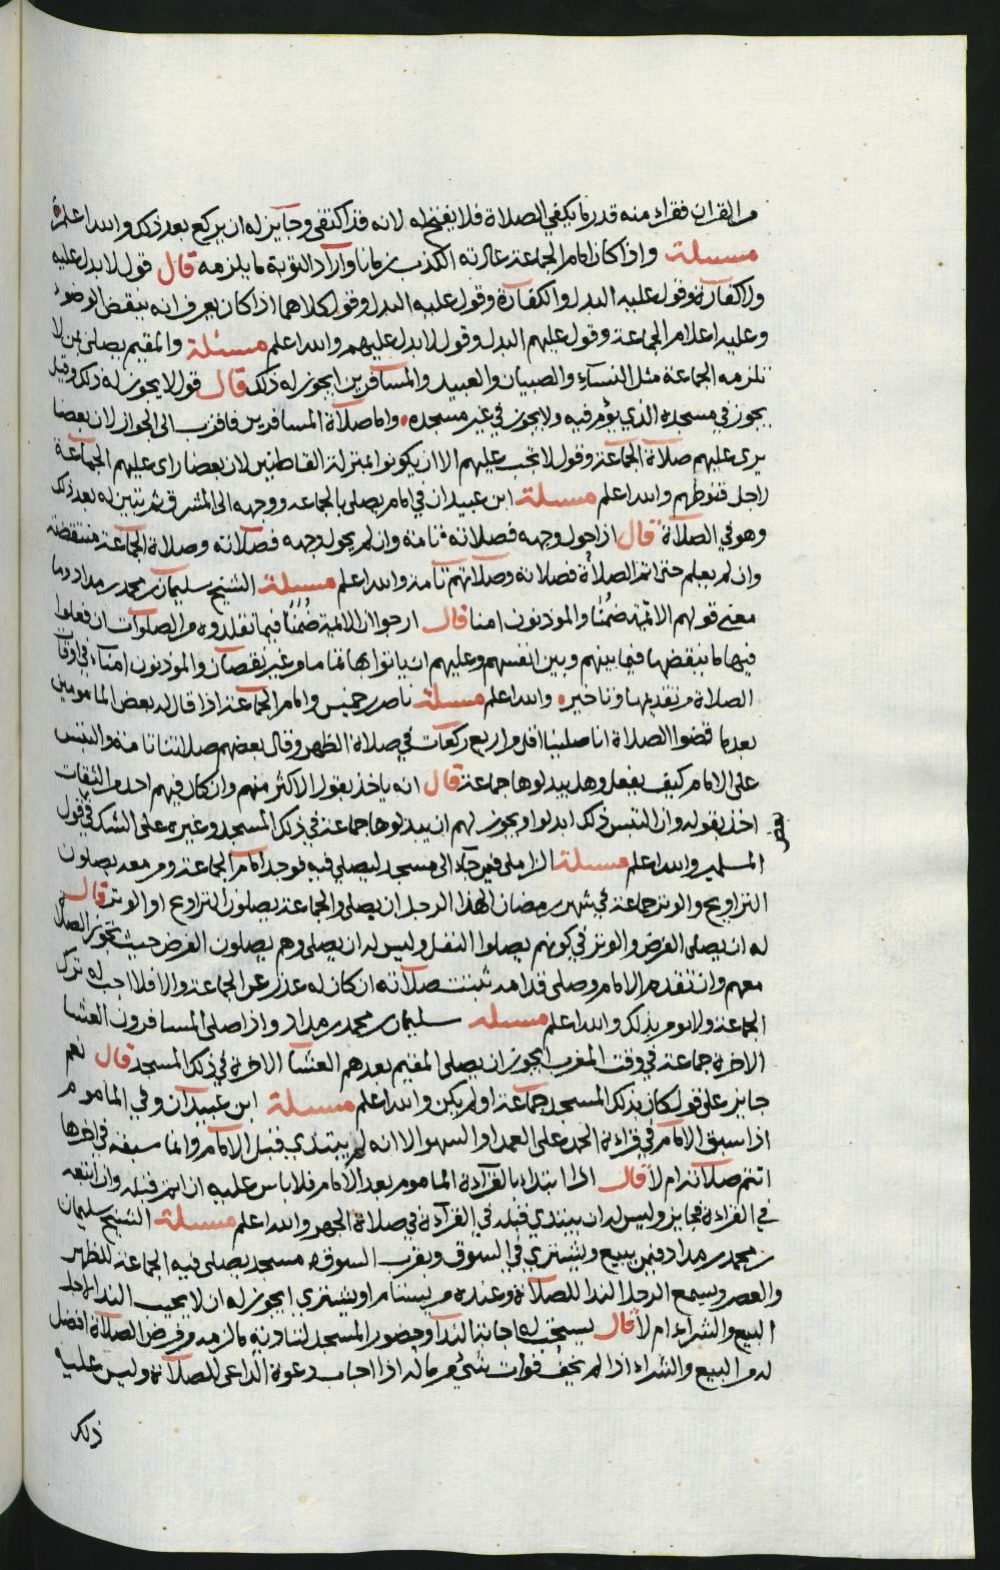 من القران فقراء منه قدر ما يكفي الصلاة فلا يفتح له لانه قد اكتفى وجايز له ان يركع بعد ذلك والله اعلم
مسىلة واذا كان امام الجماعة عادته الكذب زمانا واراد التوبة ما يلزمه قال قول لا بدل عليه
ولا كفارة وقول عليه البدل والكفارة وقول عليه البدل وقول كلاهما اذا كان يعرف انه ينقض الوضوء
وعليه اعلام الجماعة وقول عليهم البدل وقول لا بدل عليهم والله اعلم مسئلة والمقيم يصلي بمن لا
تلزمه الجماعة مثل النسآء والصبيان والعبيد والمسافرين ايجوز له ذلك قال قول لا يجوز له ذلك وقيل
يجوز في مسجده الذي يؤم فيه ولا يجوز في غير مسجده واما صلاة المسافرين فاقرب الى الجواز لان بعضا
يرى عليهم صلاة الجماعة وقول لا تجب عليهم الا ان يكونوا بمنزلة القاطنين لان بعضا راى عليهم الجماعة
راجل قنوطهم والله اعلم مسىلة ابن عبيدان في امام يصلي بالجماعه ووجهه الى المشرق ثم تبين له بعد ذلك
وهو في الصلاة قال اذا حول وجهه فصلاته تامة وان لم يحول وجهه فصلاته وصلاة الجماعة منتقضة
وان لم يعلم حتى اتم الصلاة فصلاته وصلاتهم تامة والله اعلم مسىلة الشيخ سليمان بن محمد بن مداد وما
معنى قولهم الائمة ضمنا والموذنون امنا قال ارجوا ان الائمة ضمنا فيما تقلدوه من الصلوات ان فعلوا
فيها ما ينقضها فيما بينهم وبين انفسهم وعليهم ان ياتوا بها تماما من غير نقصان والموذنون امناء في اوقات
الصلاة من تقديمها وتاخيره والله اعلم مسىلة ناصر بن خميس وامام الجماعة اذا قال له بعض المامومين
بعد ما قضوا الصلاة انا صلينا اقل من اربع ركعات في صلاة الظهر وقال بعضهم صلاتنا تامة والتبس
على الامام كيف يفعل وهل يبدلوها جماعة قال انه ياخذ بقول الاكثر منهم وان كان فيهم احد من الثقات
اخذ بقوله وان التبس ذلك ابدلوا ويجوز لهم ان يبدلوها جماعة في ذلك المسجد وغيره على الشك في قول
بعض
المسلمين والله اعلم مسىلة الزاملي فيمن جآء الى مسجد ليصلي فيه فوجد امام الجماعة ومن معه يصلون
التراويح والوتر جماعة في شهر رمضان الهذا الرجل ان يصلي والجماعة يصلون التراويح او الوتر قال
له ان يصلي الفرض والوتر في كونهم يصلوا النفل وليس له ان يصلي وهم يصلون الفرض حيث تجوز الصلاة
معهم وان تقدم الامام وصلى قدامه ثبتت صلاته ان كان له عذر عن الجماعة والا فلا احب له ترك
الجماعة ولا يومر بذلك والله اعلم مسىله سليمان بن محمد بن مداد واذا صلى المسافرون العشا
الاخرة جماعة في وقت المغرب ايجوز ان يصلي المقيم بعدهم العشا الاخرة في ذلك المسجد قال نعم
جايز على قول كان بذلك المسجد جماعة اولم يكن والله اعلم مسىلة ابن عبيدان وفي الماموم
اذا سبق الامام في قراءة الحمد على العمد او السهو الا انه لم يبتدي قبل الامام وانما سبقه في اخرها
اتتم صلاته ام لا قال اذا ابتداء بالقراءة الماموم بعد الامام فلا باس عليه ان اتم قبله وان اتبعه
في القراءة فجايز وليس له ان يبتدي قبله في القراءة في صلاة الجهر والله اعلم مسىلة الشيخ سليمان
بن محمد بن مداد فيمن يبيع ويشتري في السوق وبقرب السوق مسجد يصلى فيه الجماعة للظهر
والعصر ويسمع الرجل الندا للصلاة وعنده من يستام او يشتري ايجوز له ان لا يجيب الندا لاجل
البيع والشراء ام لا قال يستحب له اجابة الندا وحضور المسجد لتادية ما لزمه من فرض الصلاة افضل
له من البيع والشراء اذا لم يخف فوات شيء من ماله اذا اجاب دعوة الداعي للصلاة وليس عليه
ذلك